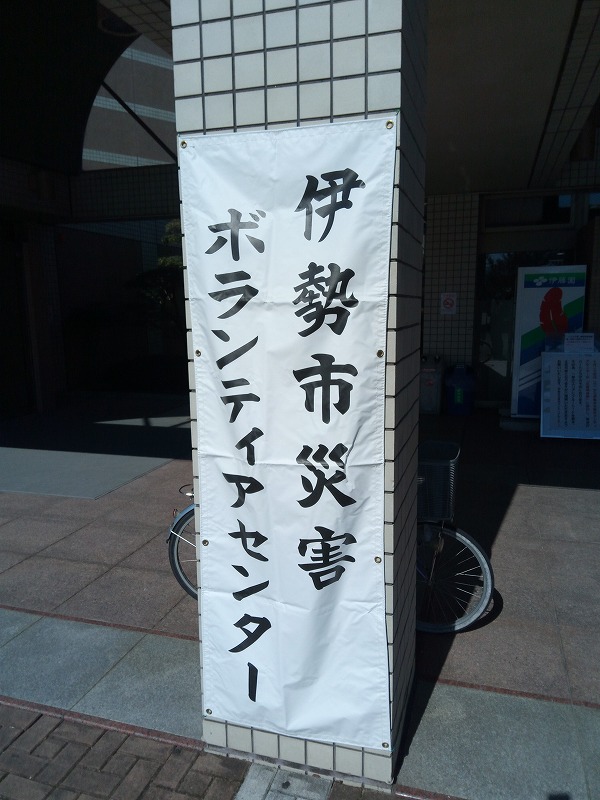 伊勢市災害
ボランティアセンター
伊藤園